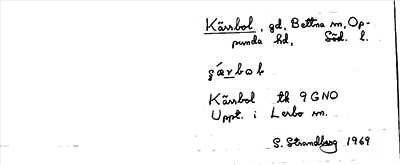 Kärrbol, gd, Bettna sn, Op-
punda hd, Söd. l.
ʂárbok
Kärrbol tk 9GNO
Uppt. i Lerbo sn.
S. Strandberg 1969